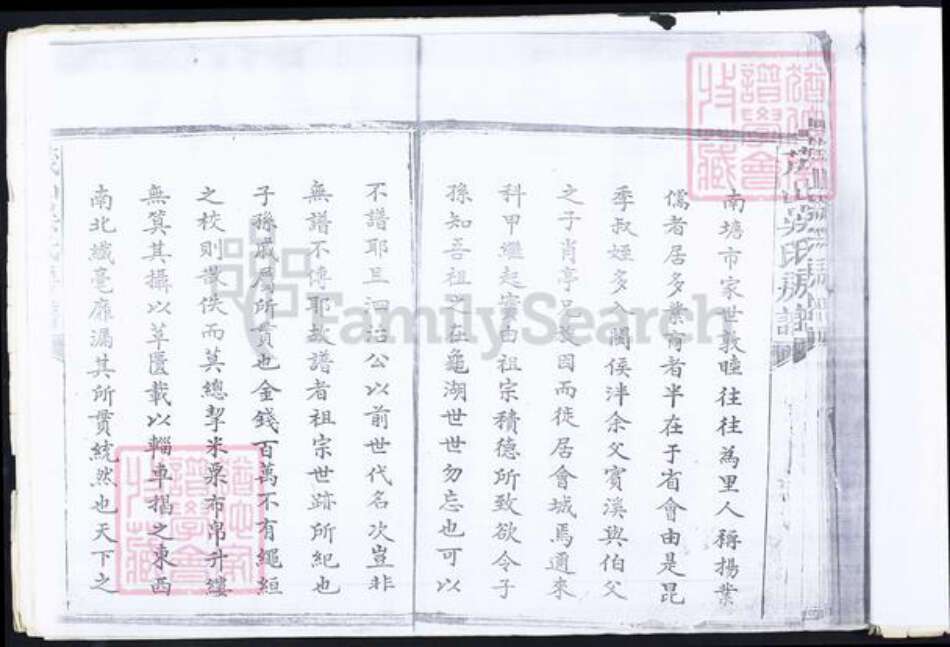 南塘市家世敦睦往往為里人稱揚業
儒者居多業商者半在于省會由是昆
季叔姪多入閩侯泮余父賓溪與伯父
之子肖亭兄彼因而徙居會城焉邇來
科甲繼起實由祖宗積德所致欲令子
孫知吾祖之在龜湖世世勿忘也可以
不譜耶且洄治公以前世代名次豈非
無譜不傳耶故譜者祖宗世跡所紀也
子孫戚屬所貫也金錢百萬不有繩絙
之校則散佚而莫總挈米粟布帛升縷
無筭其攝以草匱載以輜車揭之東西
南北纖毫靡漏其所貫統然也天下之
吳氏房譜
譜學會
收藏
FamilySearch